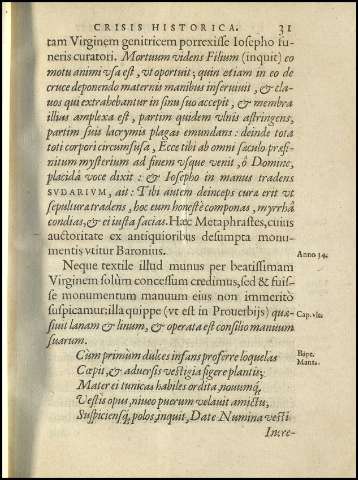 CRISIS HISTORICA. 31
tam Virginem genitricem porrexisse Iosepho fu-
neris curatori. Mortuum videns Filium (inquit) eo
motu animi vsa est, vt oportuit; quin etiam in eo de
cruce deponendo maternu manibus inseruiuit, & cla-
uos qui extrahebantur in sinu suo accepit, & membra
illius amplexa est, partim quidem vlnis astringens,
partim suis lacrymis plagas emundans: deinde tota
toti corpori circumfusa, Ecce tibi ab omni sæculo præfi-
nitum mysterium ad finem vsque venit, ô Domine,
placidâ voce dixit: & Iosepho in manus tradens
SVDARIVM, ait: Tibi autem deinceps cura erit vt
sepulturæ tradens, hoc eum honestè componas, myrrhâ
condias, & ei iusta facias. Hæc Metaphrastes, cuius
auctoritate ex antiquioribus desumpta monu-
mentis vtitur Baronius. Anno 34.
Neque textile illud munus per beatissimam
Virginem solùm concessum credimus, sed & fuis-
se monumentum manuum eius non immeritò
suspicamur: illa quippe (vt est in Prouerbijs) quæ- Cap. vlt.
siuit lanam & linum, & operata est consilio manuum
suarum.
Cùm primùm dulces infans proferre loquelas Bapt.
Cœpit, & aduersis vestigia figere plantis; Mantu.
Mater ei tunicas habiles ordita, nouumq́,
Vestis opus, niueo puerum velauit amictu,
Suspiciensq́, polos, inquit, Date Numina vesti
Incre-